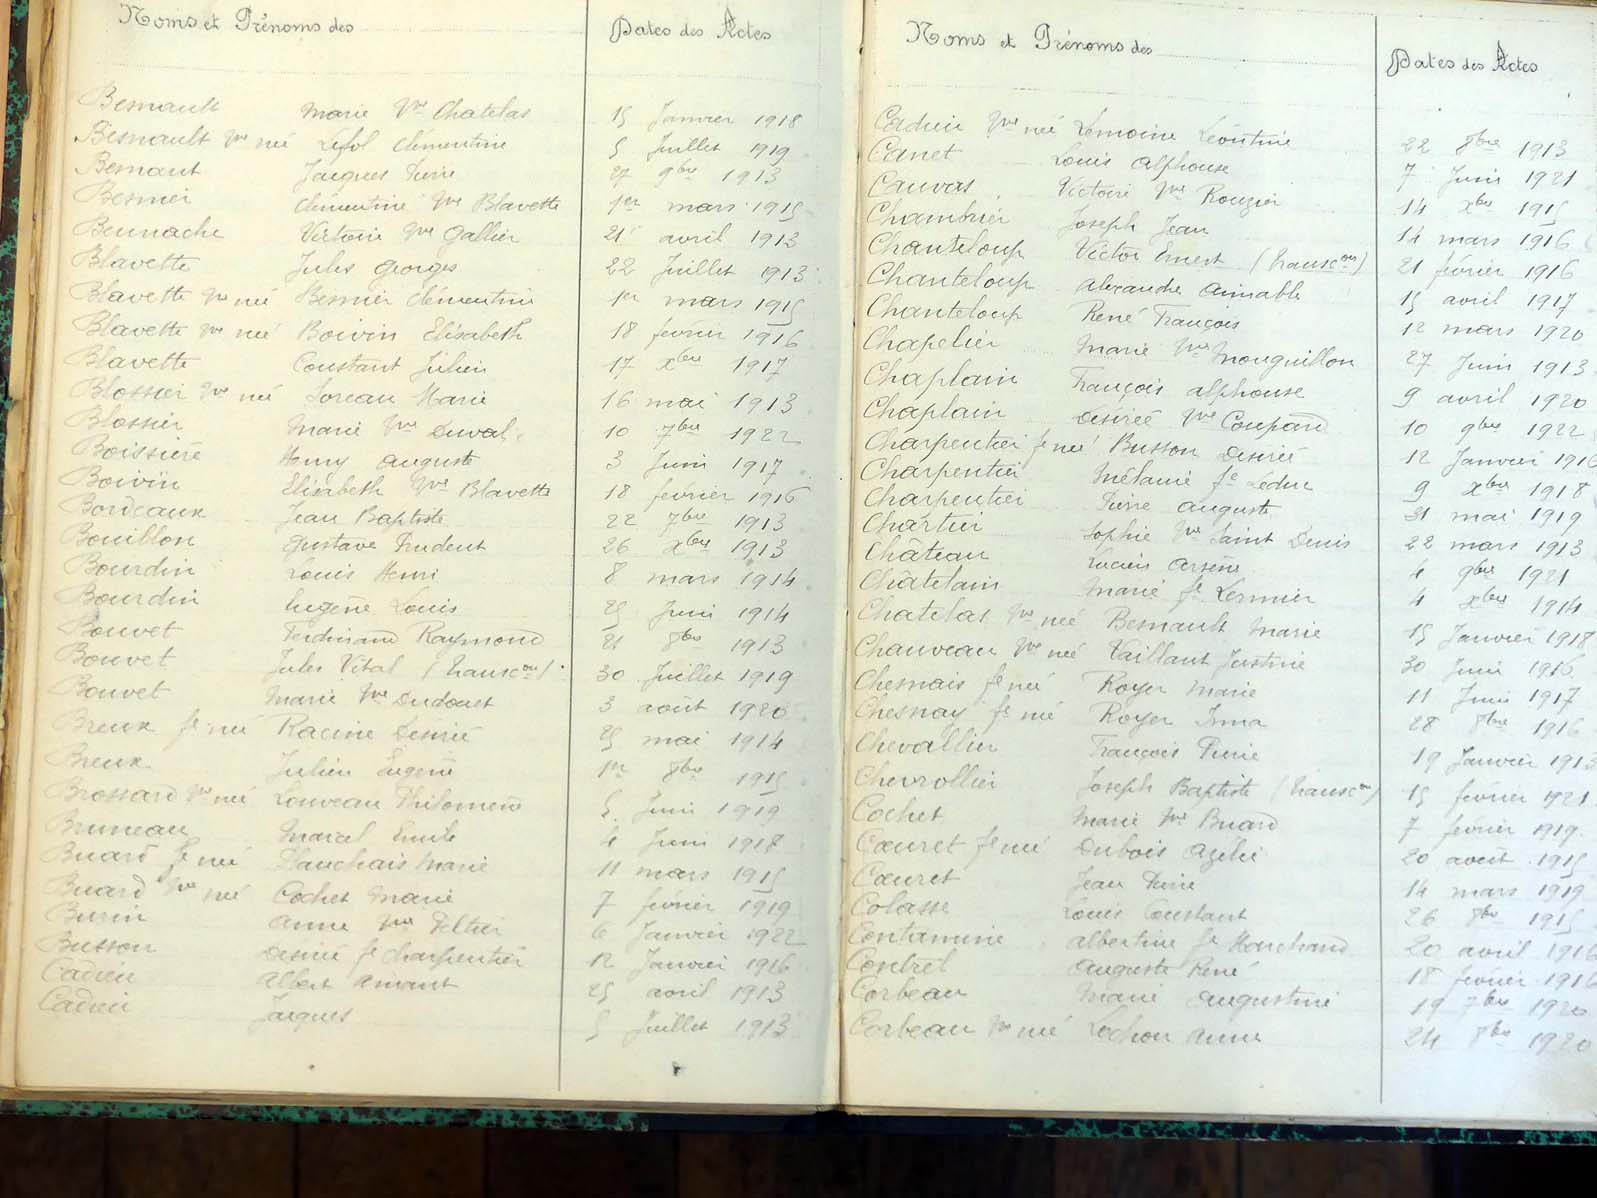 Noms et Prénoms des Dates des Actes
Besnault Marie Vve Chatelas 15 Janvier 1918
Besnault Vve née Lefol Clémentine 5 Juillet 1919
Besnault Jacques Pierre 27 9bre 1913
Besnier Clémentine Vve Blavette 1er mars 1915
Beunache Victoire Vve Gallier 21 avril 1913
Blavette Jules Georges 22 Juillet 1913
Blavette Vve née Besnier Clémentine 1er mars 1915
Blavette Vve née Boivin Elisabeth 18 février 1916
Blavette Constant Julien 17 Xbre 1917
Blossier Vve née Soreau Marie 16 mai 1913
Blossier Marie Vve Duval 10 7bre 1922
Boissière Henry Auguste 3 Juin 1917
Boivin Elisabeth Vve Blavette 18 février 1916
Bordeaux Jean Baptiste 22 7bre 1913
Bouillon Gustave Prudent 26 Xbre 1913
Bourdin Louis Henri 8 mars 1914
Bourdin Eugène Louis 25 Juin 1914
Bouvet Ferdinand Raymond 21 8bre 1913
Bouvet Jules Vital (transcon) 30 Juillet 1919
Bouvet Marie Vve Dudouet 3 août 1920
Breux fe née Racine Désirée 25 mai 1914
Breux Julien Eugène 1er 8bre 1915
Brossard Vve née Louveau Philomène 5 Juin 1919
Bruneau Marcel Emile 4 Juin 1918
Buard fe née Dauchais Marie 11 mars 1915
Buard Vve née Cochet Marie 7 février 1919
Burin Anne Vve Peltier 6 Janvier 1922
Busson Desirée fe Charpentier 12 Janvier 1916
Cadieu Albert Amant 25 avril 1913
Cadieu Jacques 5 Juillet 1913
Noms et Prénoms des Dates des Actes
Cadieu Vve née Lemoine Léontine 22 8bre 1913
Canet Louis Alphonse 7 Juin 1921
Cauvas Victoire Vve Rougier 14 Xbre 1915
Chambrier Joseph Jean 14 mars 1916
Chanteloup Victor Ernest (transcon) 21 février 1916
Chanteloup Alexandre Aimable 15 avril 1917
Chanteloup René François 12 mars 1920
Chapelier Marie Vve Mouguillon 27 Juin 1913
Chaplain François Alphonse 9 avril 1920
Chaplain Desirée Vve Coupard 10 9bre 1922
Charpentier fe née Busson Desirée 12 Janvier 1916
Charpentier Mélanie fe Leduc 9 Xbre 1918
Charpentier Pierre Auguste 31 mai 1919
Chartier Sophie Vve Saint Denis 22 mars 1913
Château Lucien Arsène 4 9bre 1921
Châtelain Marie fe Lermier 4 Xbre 1914
Chatelas Vve née Besnault Marie 15 Janvier 1918
Chauveau Vve née Vaillant Justine 30 Juin 1916
Chesnais fe née Royer Marie 11 Juin 1917
Chesnay fe née Royer Irma 28 8bre 1916
Chevallier François Pierre 19 Janvier 1913
Chevrollier Joseph Baptiste (transcon) 15 février 1921
Cochet Marie Vve Buard 7 février 1919
Cœuret fe née Dubois Azélie 20 août 1915
Cœuret Jean Pierre 14 mars 1919
Colasse Louis Constant 26 8bre 1915
Contamine Albertine fe Marchand 20 avril 1916
Contrel Auguste René 18 février 1916
Corbeau Marie Augustine 19 7bre 1920
Corbeau Vve née Lochon Anne 24 8bre 1920